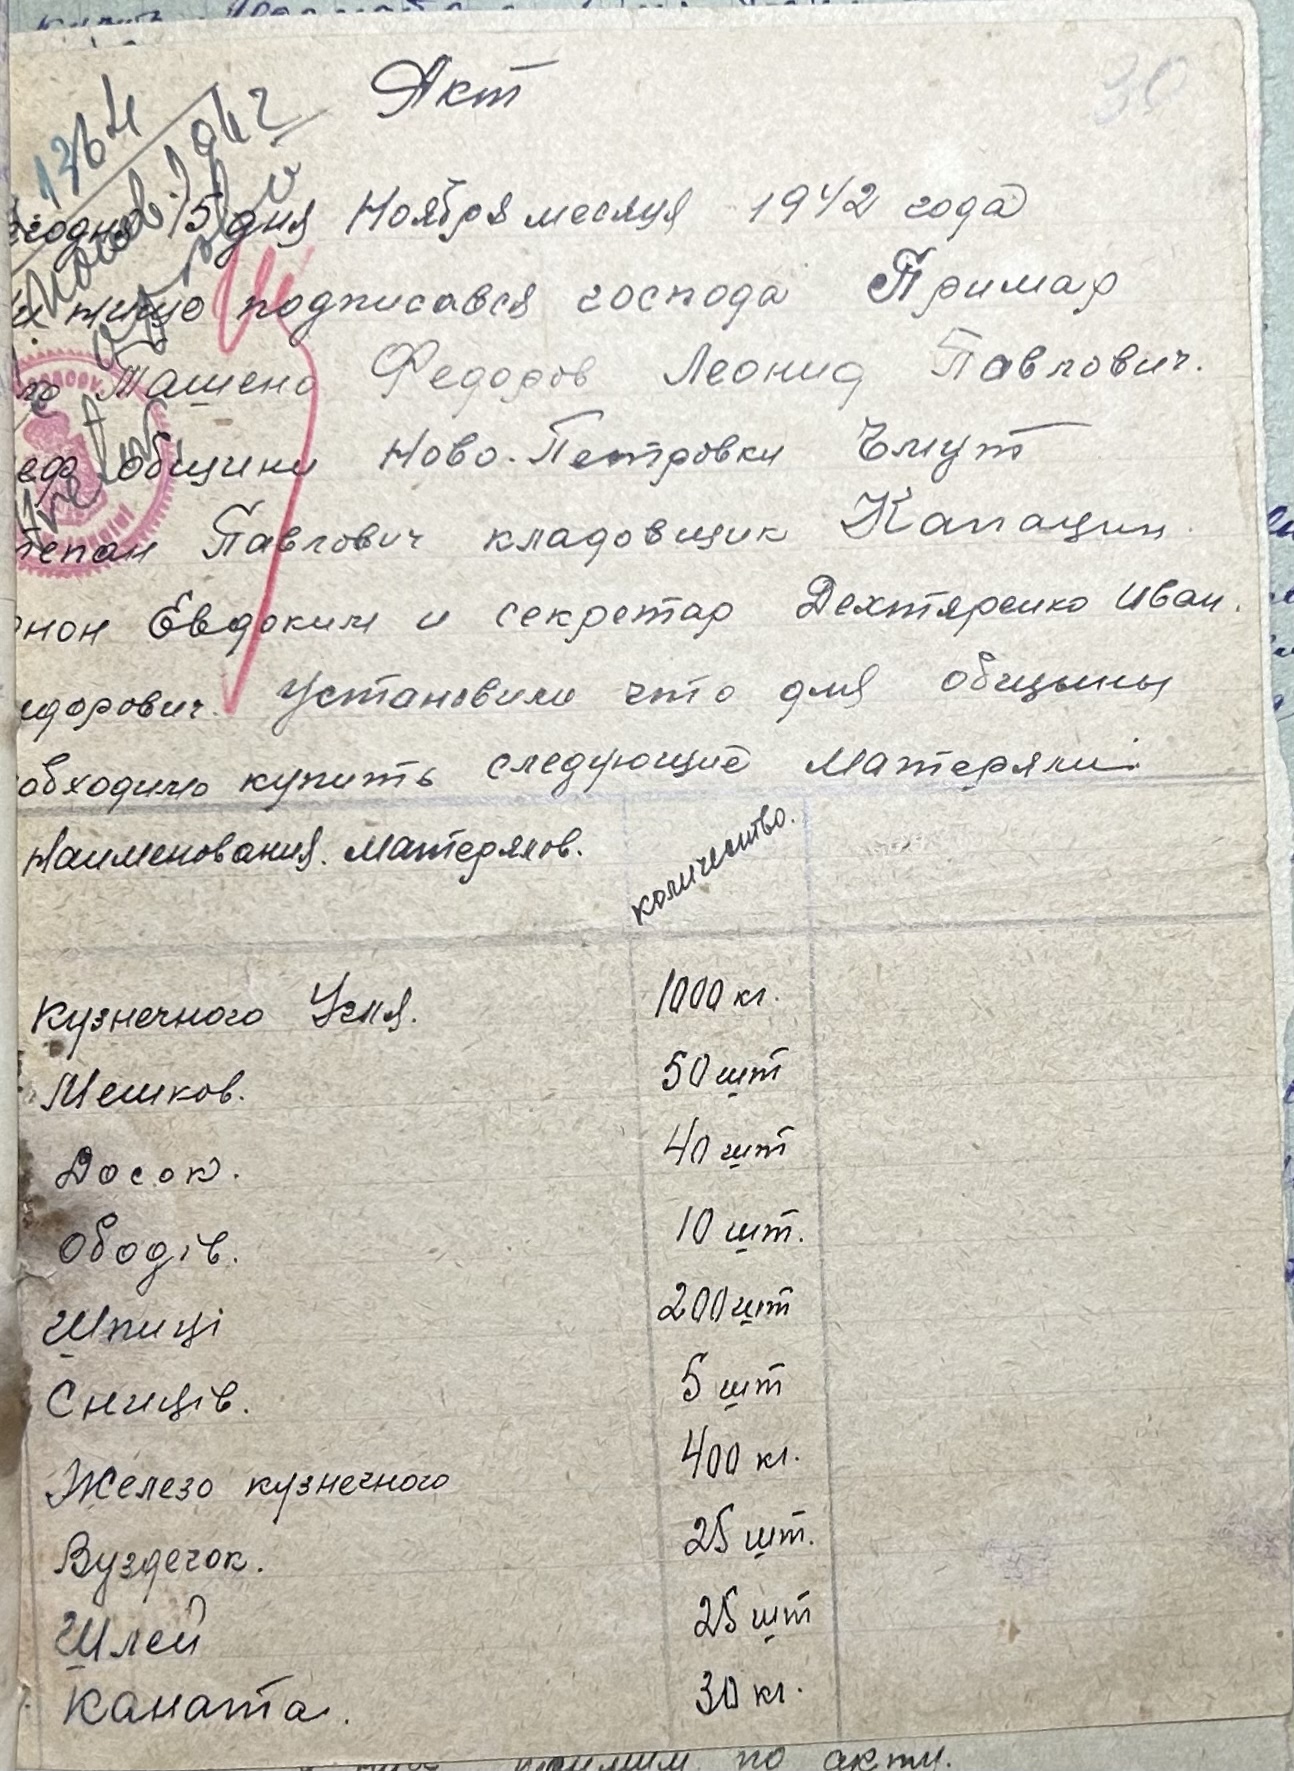 30
Акт
1364
1942
егодня 15 дня Ноября месяця 1942 года
подписався господа Примар
Ташено Федоров Леонид Павлович.
еф общини Ново-Петровки Чмут
тепан Павлович кладовщик Капацин
нон Евдоким и секретар Дехтяренко Иван.
идорович. Установили что для общины
обходимо купить следующие Матеряли.
Наименования. матерялов.
количество.
Кузнечного Угля. 1000 кг.
Мешков. 50 шт
Досок. 40 шт
Ободів. 10 шт.
Шпиці 200 шт
Сниців. 5 шт
Железо кузнечного 400 кг.
Вуздечок. 25 шт.
Шлей 25 шт
Каната. 30 кг.
по акту.